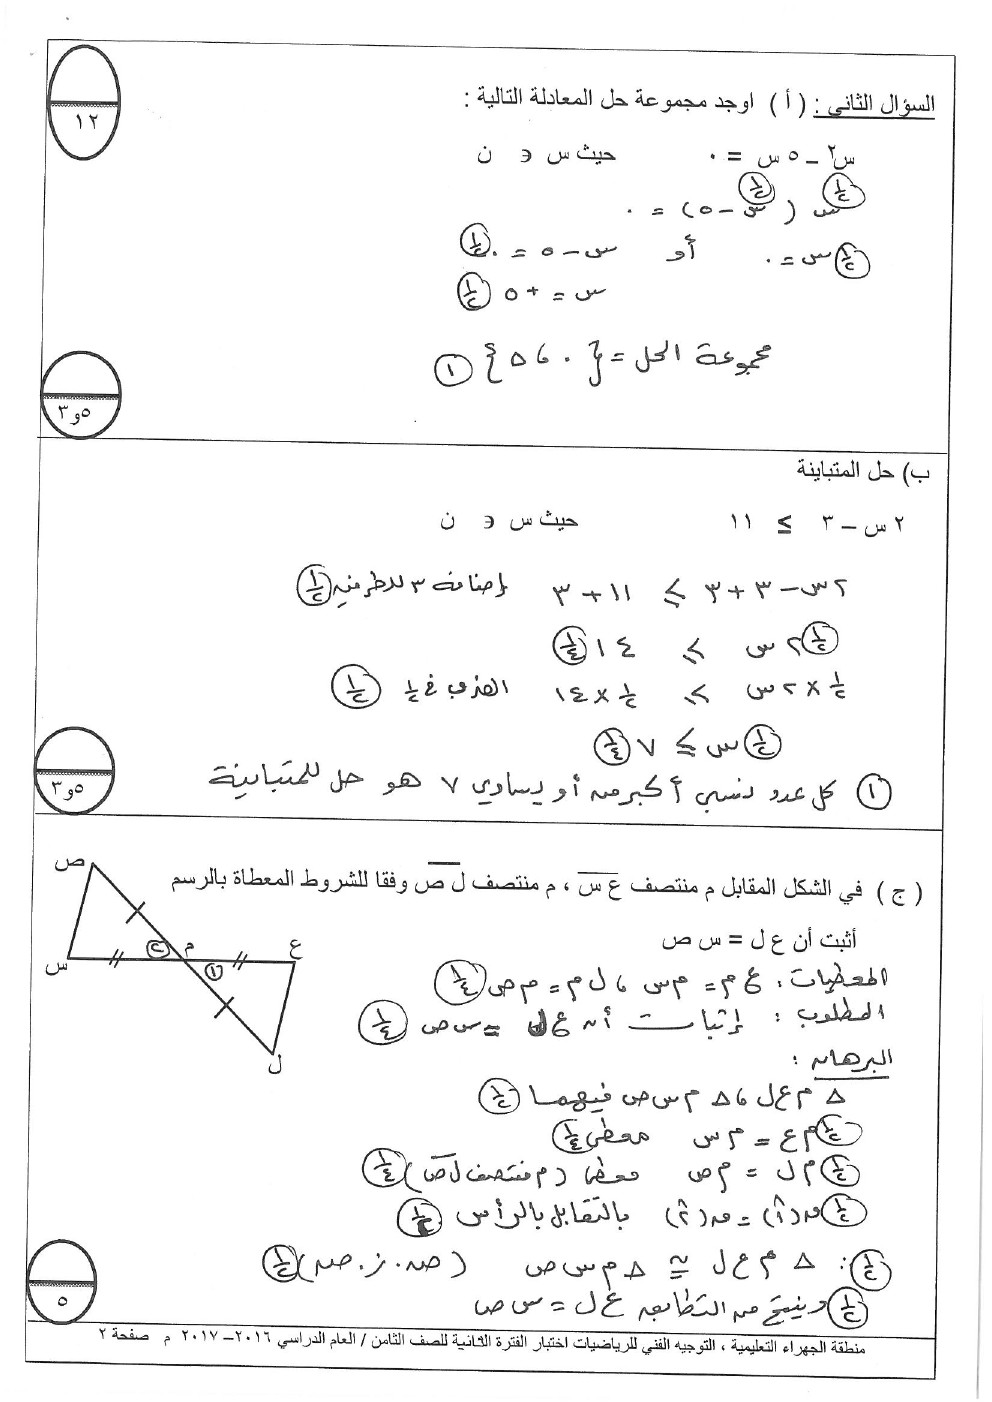 ١٢
السؤال الثاني : ( أ ) اوجد مجموعة حل المعادلة التالية :
س٢ – ٥ س = ٠ حيث س ∋ ن
س ( س – ٥ ) = ٠ ½ ½
½ س = ٠ أو س – ٥ = ٠ ½
س = +٥ ½
مجموعة الحل = { ٠ ، ٥ } ١
٣و٥
ب) حل المتباينة
٢ س – ٣ ≥ ١١ حيث س ∋ ن
٢س – ٣ + ٣ ≥ ١١ + ٣ إضافة ٣ للطرفين ½
½ ٢ س ≥ ١٤ ¼
½ × ٢ س ≥ ½ × ١٤ الضرب في ½ ½
½ س ≥ ٧ ¼
١ كل عدد نسبي أكبر من أو يساوي ٧ هو حل للمتباينة
٣و٥
( ج ) في الشكل المقابل م منتصف ع س ، م منتصف ل ص وفقا للشروط المعطاة بالرسم
أثبت أن ع ل = س ص
ص
س
م
ع
ل
٢
١
المعطيات : ع م = م س ، ل م = م ص ¼
المطلوب : إثبات أن ع ل = س ص ¼
البرهان :
∆ م ع ل ، ∆ م س ص فيهما ½
½ م ع = م س معطى ¼
½ م ل = م ص معطى (م منتصف ل ص) ¼
½ ق(١^) = ق(٢^) بالتقابل بالرأس
½ ∴ ∆ م ع ل ≅ ∆ م س ص (ض . ز . ض) ½
½ وينتج من التطابق ع ل = س ص
٥
منطقة الجهراء التعليمية ، التوجيه الفني للرياضيات اختبار الفترة الثانية للصف الثامن / العام الدراسي ٢٠١٦–٢٠١٧ م صفحة ٢